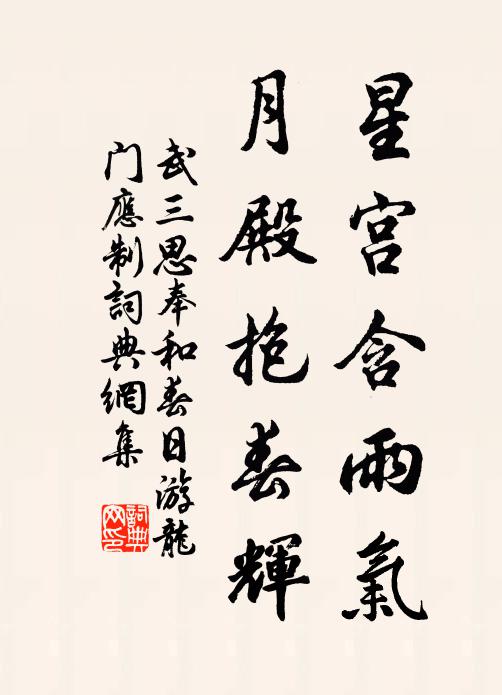 星宫含雨氣
月殿抱春輝
武三思奉和春日游龍
门應制詞典網集
詞典
网印